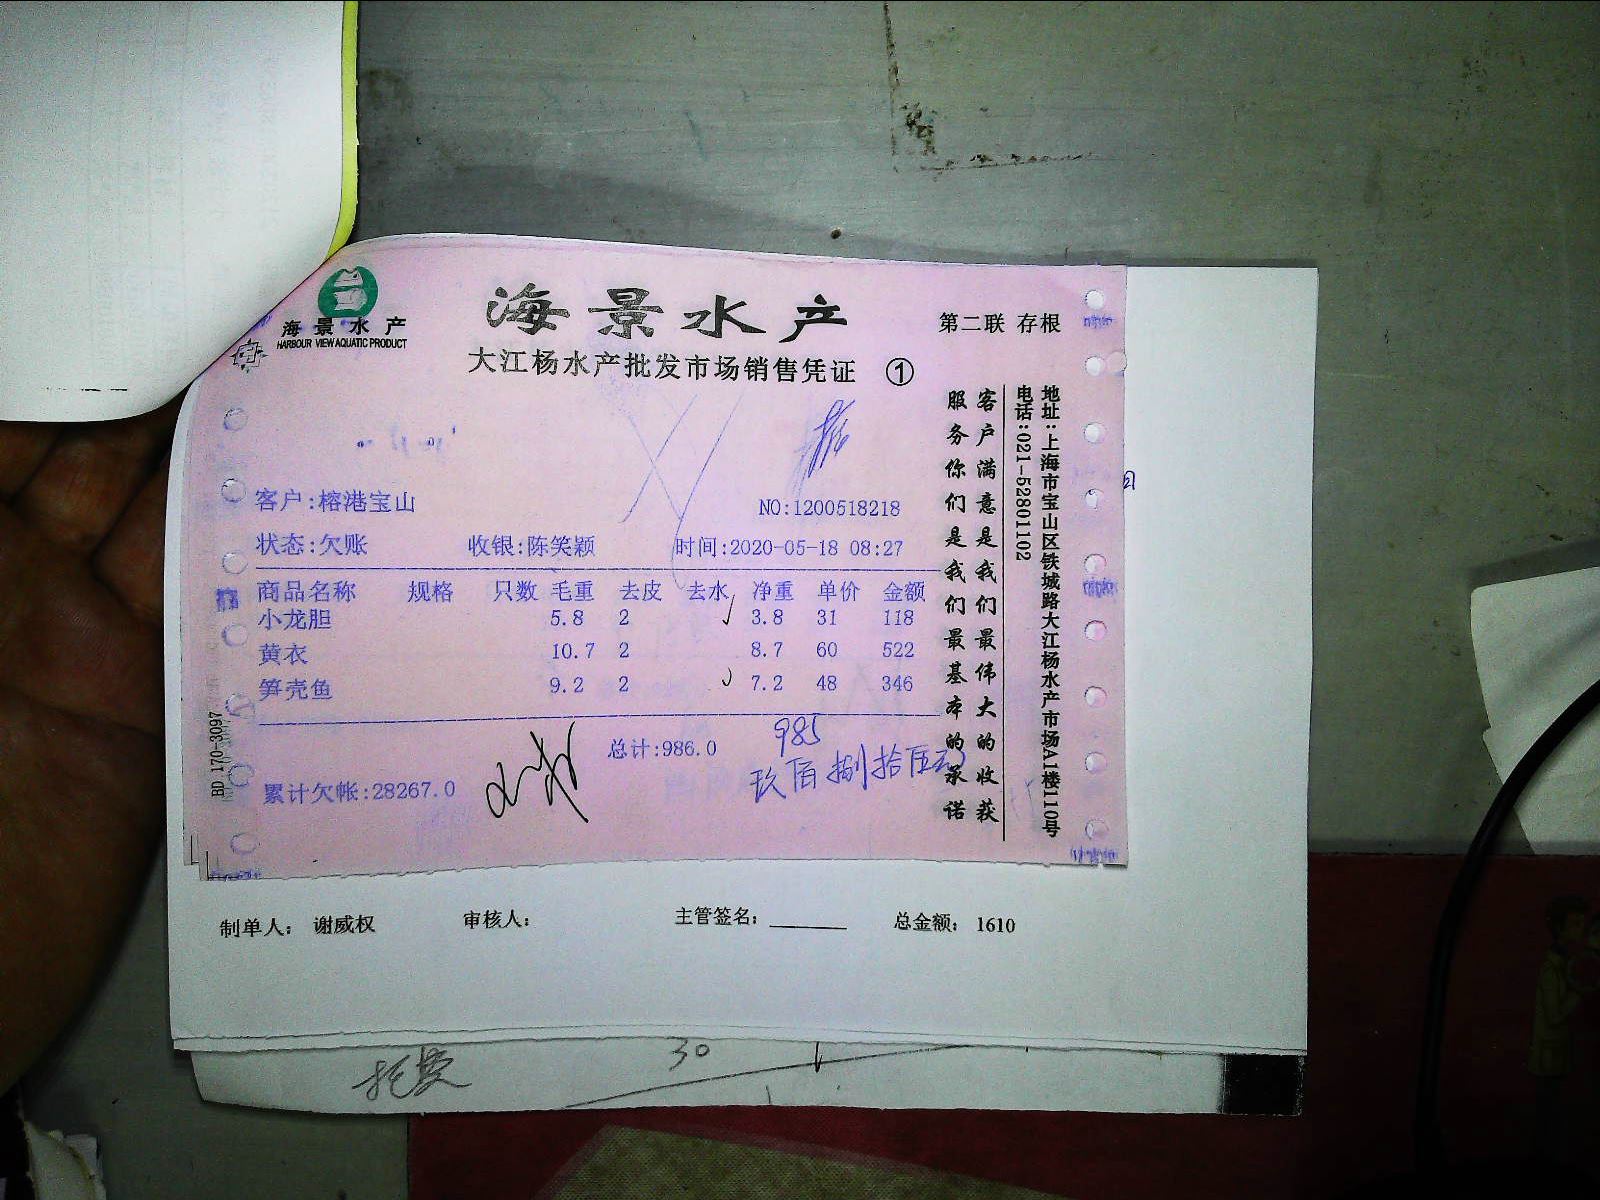 海景水产
HARBOUR VIEW AQUATIC PRODUCT
海景水产
第二联 存根
大江杨水产批发市场销售凭证 ①
客户:榕港宝山
NO:1200518218
状态:欠账 收银:陈笑颖 时间:2020-05-18 08:27
商品名称 规格 只数 毛重 去皮 去水 净重 单价 金额
小龙胆 5.8 2 ✓ 3.8 31 118
黄衣 10.7 2 8.7 60 522
笋壳鱼 9.2 2 ✓ 7.2 48 346
总计:986.0
985
玖佰捌拾伍元
累计欠帐:28267.0
客户满意是我们最伟大的收获
服务你们是我们最基本的承诺
地址:上海市宝山区铁城路大江杨水产市场A1楼110号
电话:021-52801102
BD 170-3097
制单人: 谢威权 审核人: 主管签名: 总金额: 1610
30